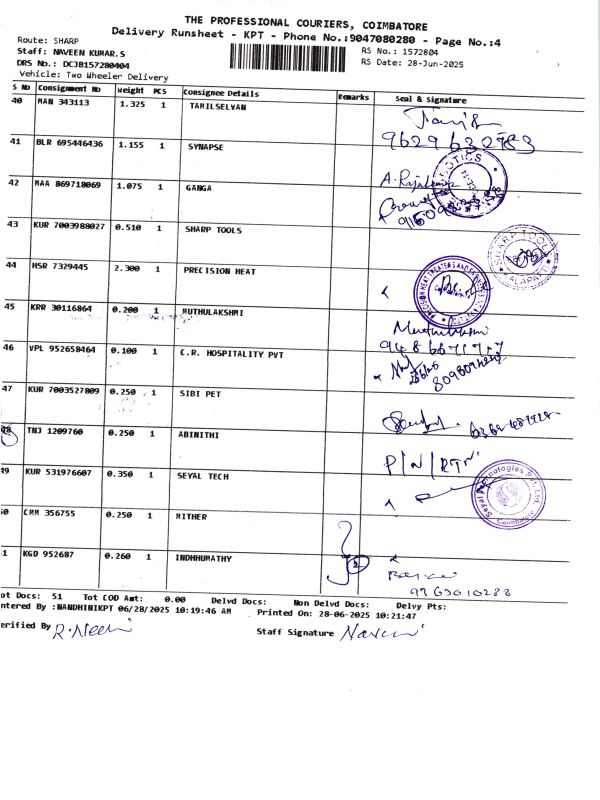 THE PROFESSIONAL COURIERS, COIMBATORE
Delivery Runsheet - KPT - Phone No.:9047080280 - Page No.:4
Route: SHARP
RS No.: 1572804
Staff: NAVEEN KUMAR.S
RS Date: 28-Jun-2025
DRS No.: DCJB157280404
Vehicle: Two Wheeler Delivery
S No Consignment No Weight PCS Consignee Details Remarks Seal & Signature
40 MAN 343113 1.325 1 TAMILSELVAN
9629632983
41 BLR 695446436 1.155 1 SYNAPSE
42 MAA 869718069 1.075 1 GANGA
43 KUR 7003988027 0.510 1 SHARP TOOLS
SHARP TOOLS
44 HSR 7329445 2.300 1 PRECISION HEAT
45 KRR 30116864 0.200 1 MUTHULAKSHMI
46 VPL 952658464 0.100 1 C.R. HOSPITALITY PVT
47 KUR 7003527809 0.250 1 SIBI PET
48 TNJ 1209760 0.250 1 ABINITHI
P/N/RTN
49 KUR 531976607 0.350 1 SEYAL TECH
Seyal Technologies Pvt. Ltd. Coimbatore
50 CMM 356755 0.250 1 MITHER
2
51 KGD 952687 0.260 1 INDHHUMATHY
Tot Docs: 51 Tot COD Amt: 0.00 Delvd Docs: Non Delvd Docs: Delvy Pts:
Entered By :NANDHINIKPT 06/28/2025 10:19:46 AM Printed On: 28-06-2025 10:21:47
Verified By
Staff Signature Naveen